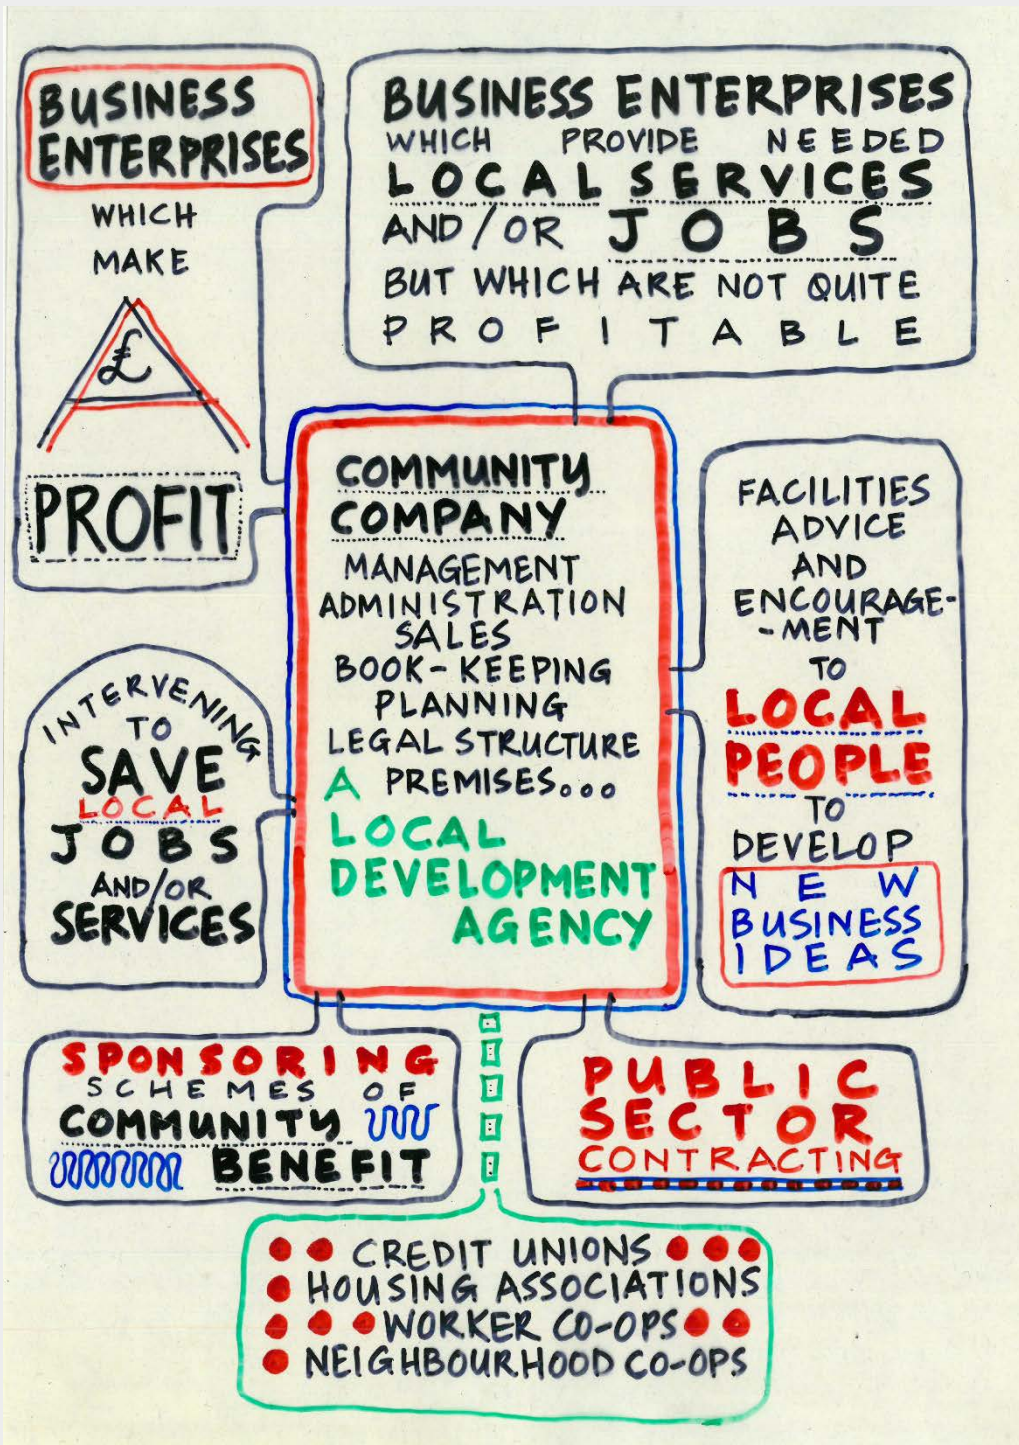 BUSINESS
ENTERPRISES
WHICH
MAKE
A
£
PROFIT
BUSINESS ENTERPRISES
WHICH PROVIDE NEEDED
LOCAL SERVICES
AND/OR JOBS
BUT WHICH ARE NOT QUITE
PROFITABLE
COMMUNITY
COMPANY
MANAGEMENT
ADMINISTRATION
SALES
BOOK-KEEPING
PLANNING
LEGAL STRUCTURE
A PREMISES...
LOCAL
DEVELOPMENT
AGENCY
FACILITIES
ADVICE
AND
ENCOURAGE-
-MENT
TO
LOCAL
PEOPLE
TO
DEVELOP
NEW
BUSINESS
IDEAS
INTERVENING
TO
SAVE
LOCAL
JOBS
AND/OR
SERVICES
SPONSORING
SCHEMES OF
COMMUNITY
BENEFIT
PUBLIC
SECTOR
CONTRACTING
CREDIT UNIONS
HOUSING ASSOCIATIONS
WORKER CO-OPS
NEIGHBOURHOOD CO-OPS